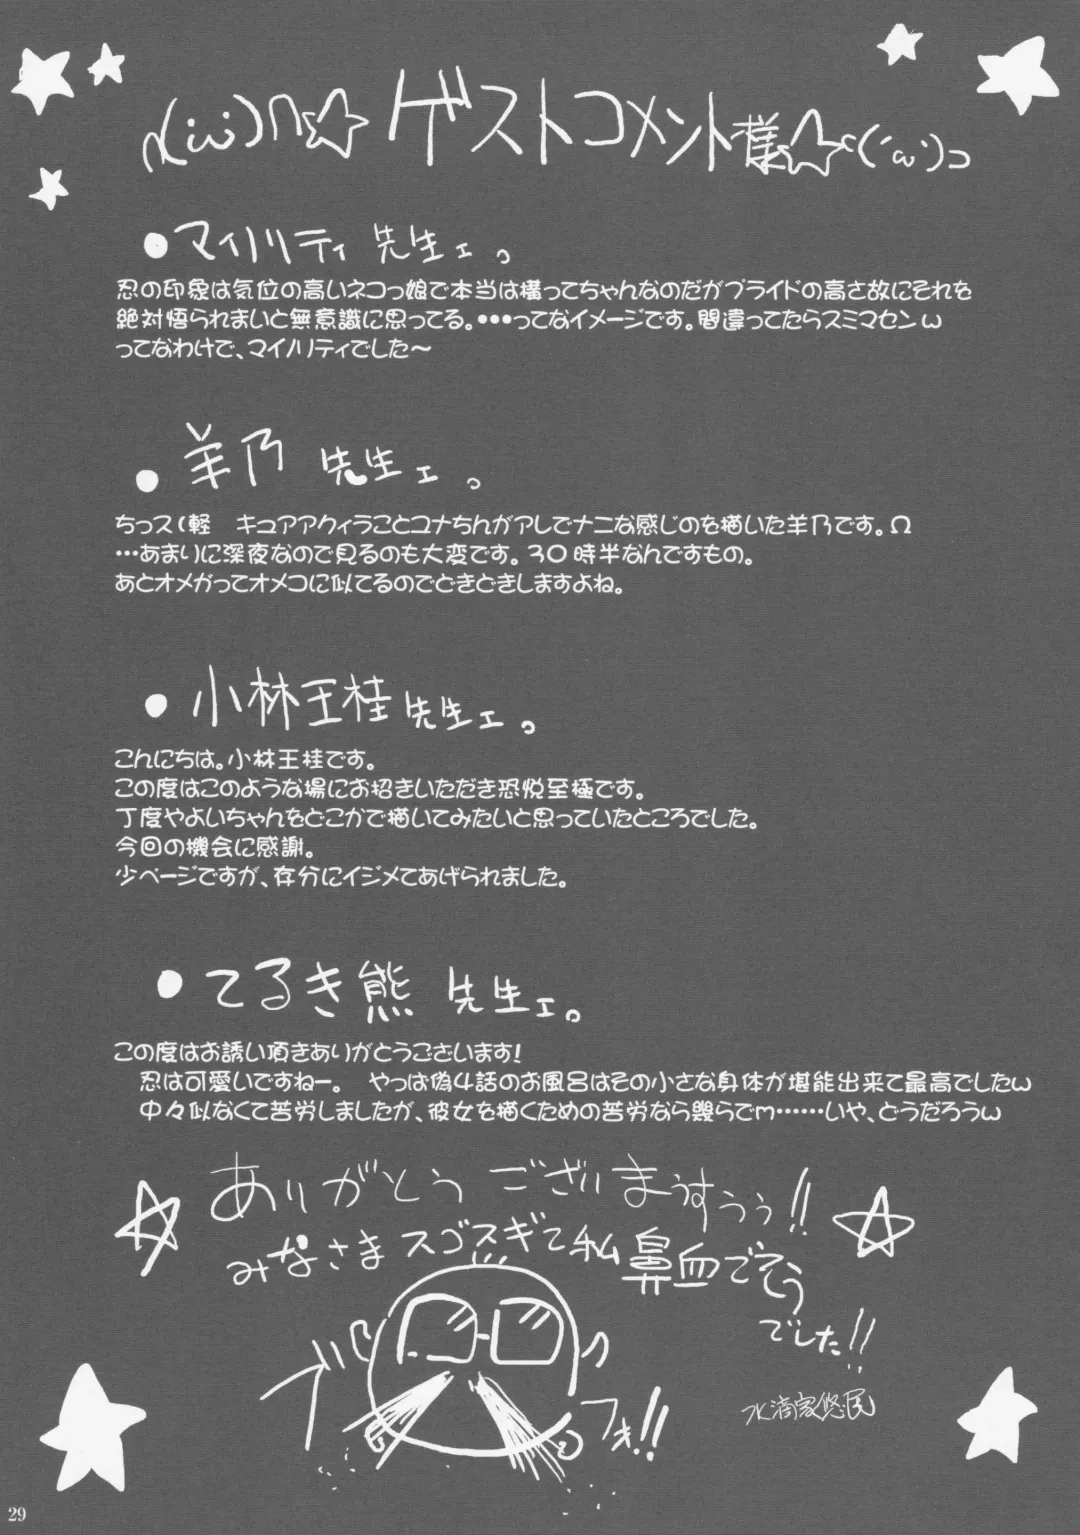 ∩(´ω`)∩☆ゲストコメント様☆⊂(´ω`)⊃
●マイノリティ 先生ェ。
忍の印象は気位の高いネコっ娘で本当は構ってちゃんなのだがプライドの高さ故にそれを
絶対悟られまいと無意識に思ってる。・・・ってなイメージです。間違ってたらスミマセンω
ってなわけで、マイノリティでした～
●羊乃 先生ェ。
ちっス（軽 キュアアクィラことユナちんがアレでナニな感じのを描いた羊乃です。Ω
…あまりに深夜なので見るのも大変です。30時半なんですもの。
あとオメガってオメコに似てるのでどきどきしますよね。
●小林王桂先生ェ。
こんにちは。小林王桂です。
この度はこのような場にお招きいただき恐悦至極です。
丁度やよいちゃんをどこかで描いてみたいと思っていたところでした。
今回の機会に感謝。
少ページですが、存分にイジメてあげられました。
●てるき熊 先生ェ。
この度はお誘い頂きありがとうございます！
忍は可愛いですねー。 やっぱ偽4話のお風呂はその小さな身体が堪能出来て最高でしたω
中々似なくて苦労しましたが、彼女を描くための苦労なら幾らでm……いや、どうだろうω
ありがとう ございまぅすぅぅ!!
みなさまスゴスギて私鼻血でそう
でした!!
ブバッ
ブフォ!!
水滴家悠民
29